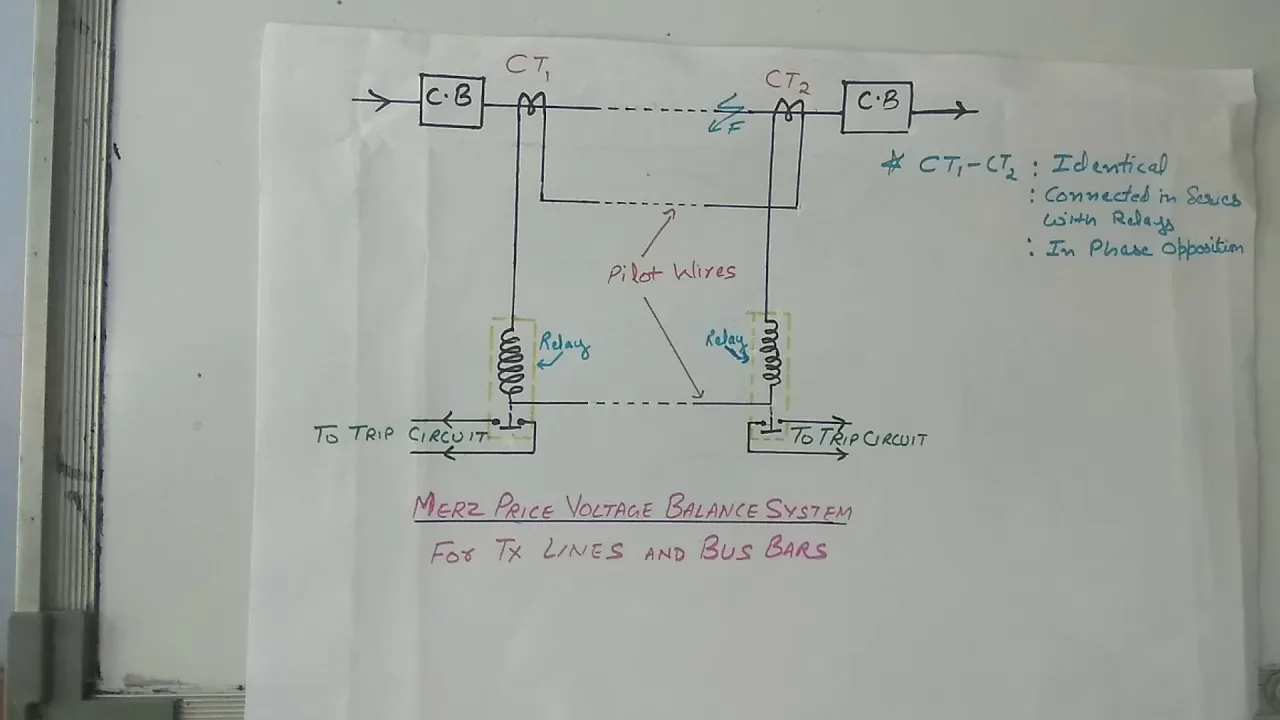 CT1
CT2
C.B
C.B
F
* CT1-CT2 : Identical
: Connected in Series
with Relays
: In Phase Opposition
Pilot Wires
Relay
Relay
TO TRIP CIRCUIT
TO TRIP CIRCUIT
MERZ PRICE VOLTAGE BALANCE SYSTEM
FOR TX LINES AND BUS BARS